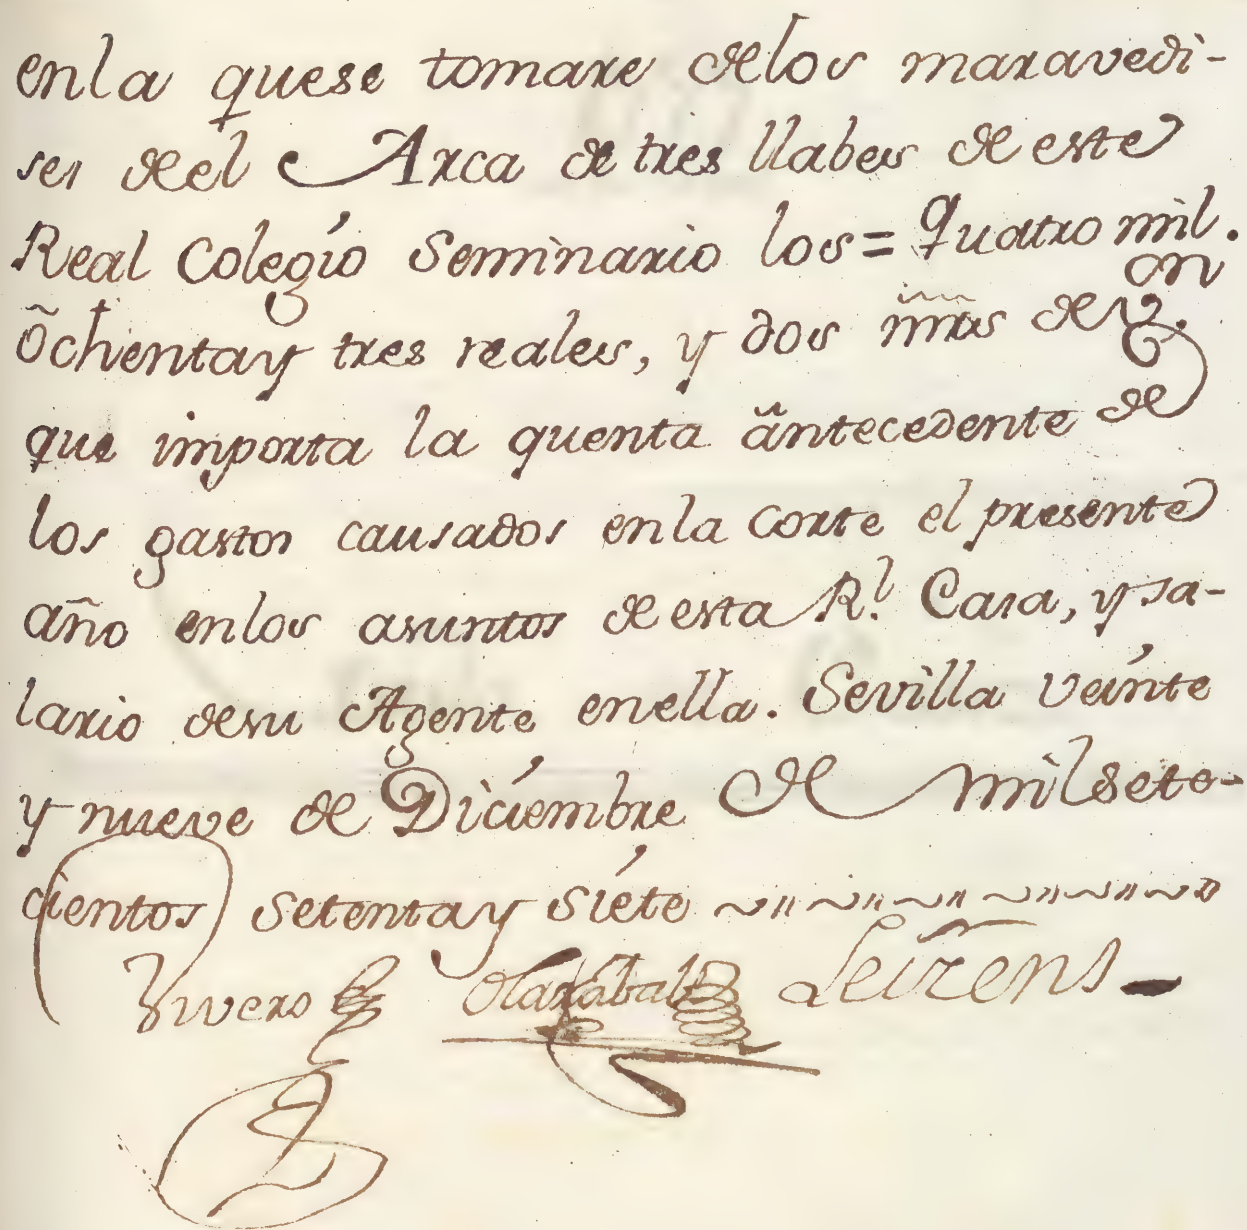 enla quese tomare delos maravedi-
ses deel Arca de tres llabes de este
Real Colegio Seminario los = quatro mil.
õchentay tres reales, y dos mr̃s de v.on
que importa la quenta antecedente de
los gastos causados enla corte el presente
año enlos asuntos de esta R.l Casa, y sa-
lario desu Agente enella. Sevilla veinte
y nueve de Diciembre de milsete-
cientos setentay siete
Vivero Olazabal Leirens